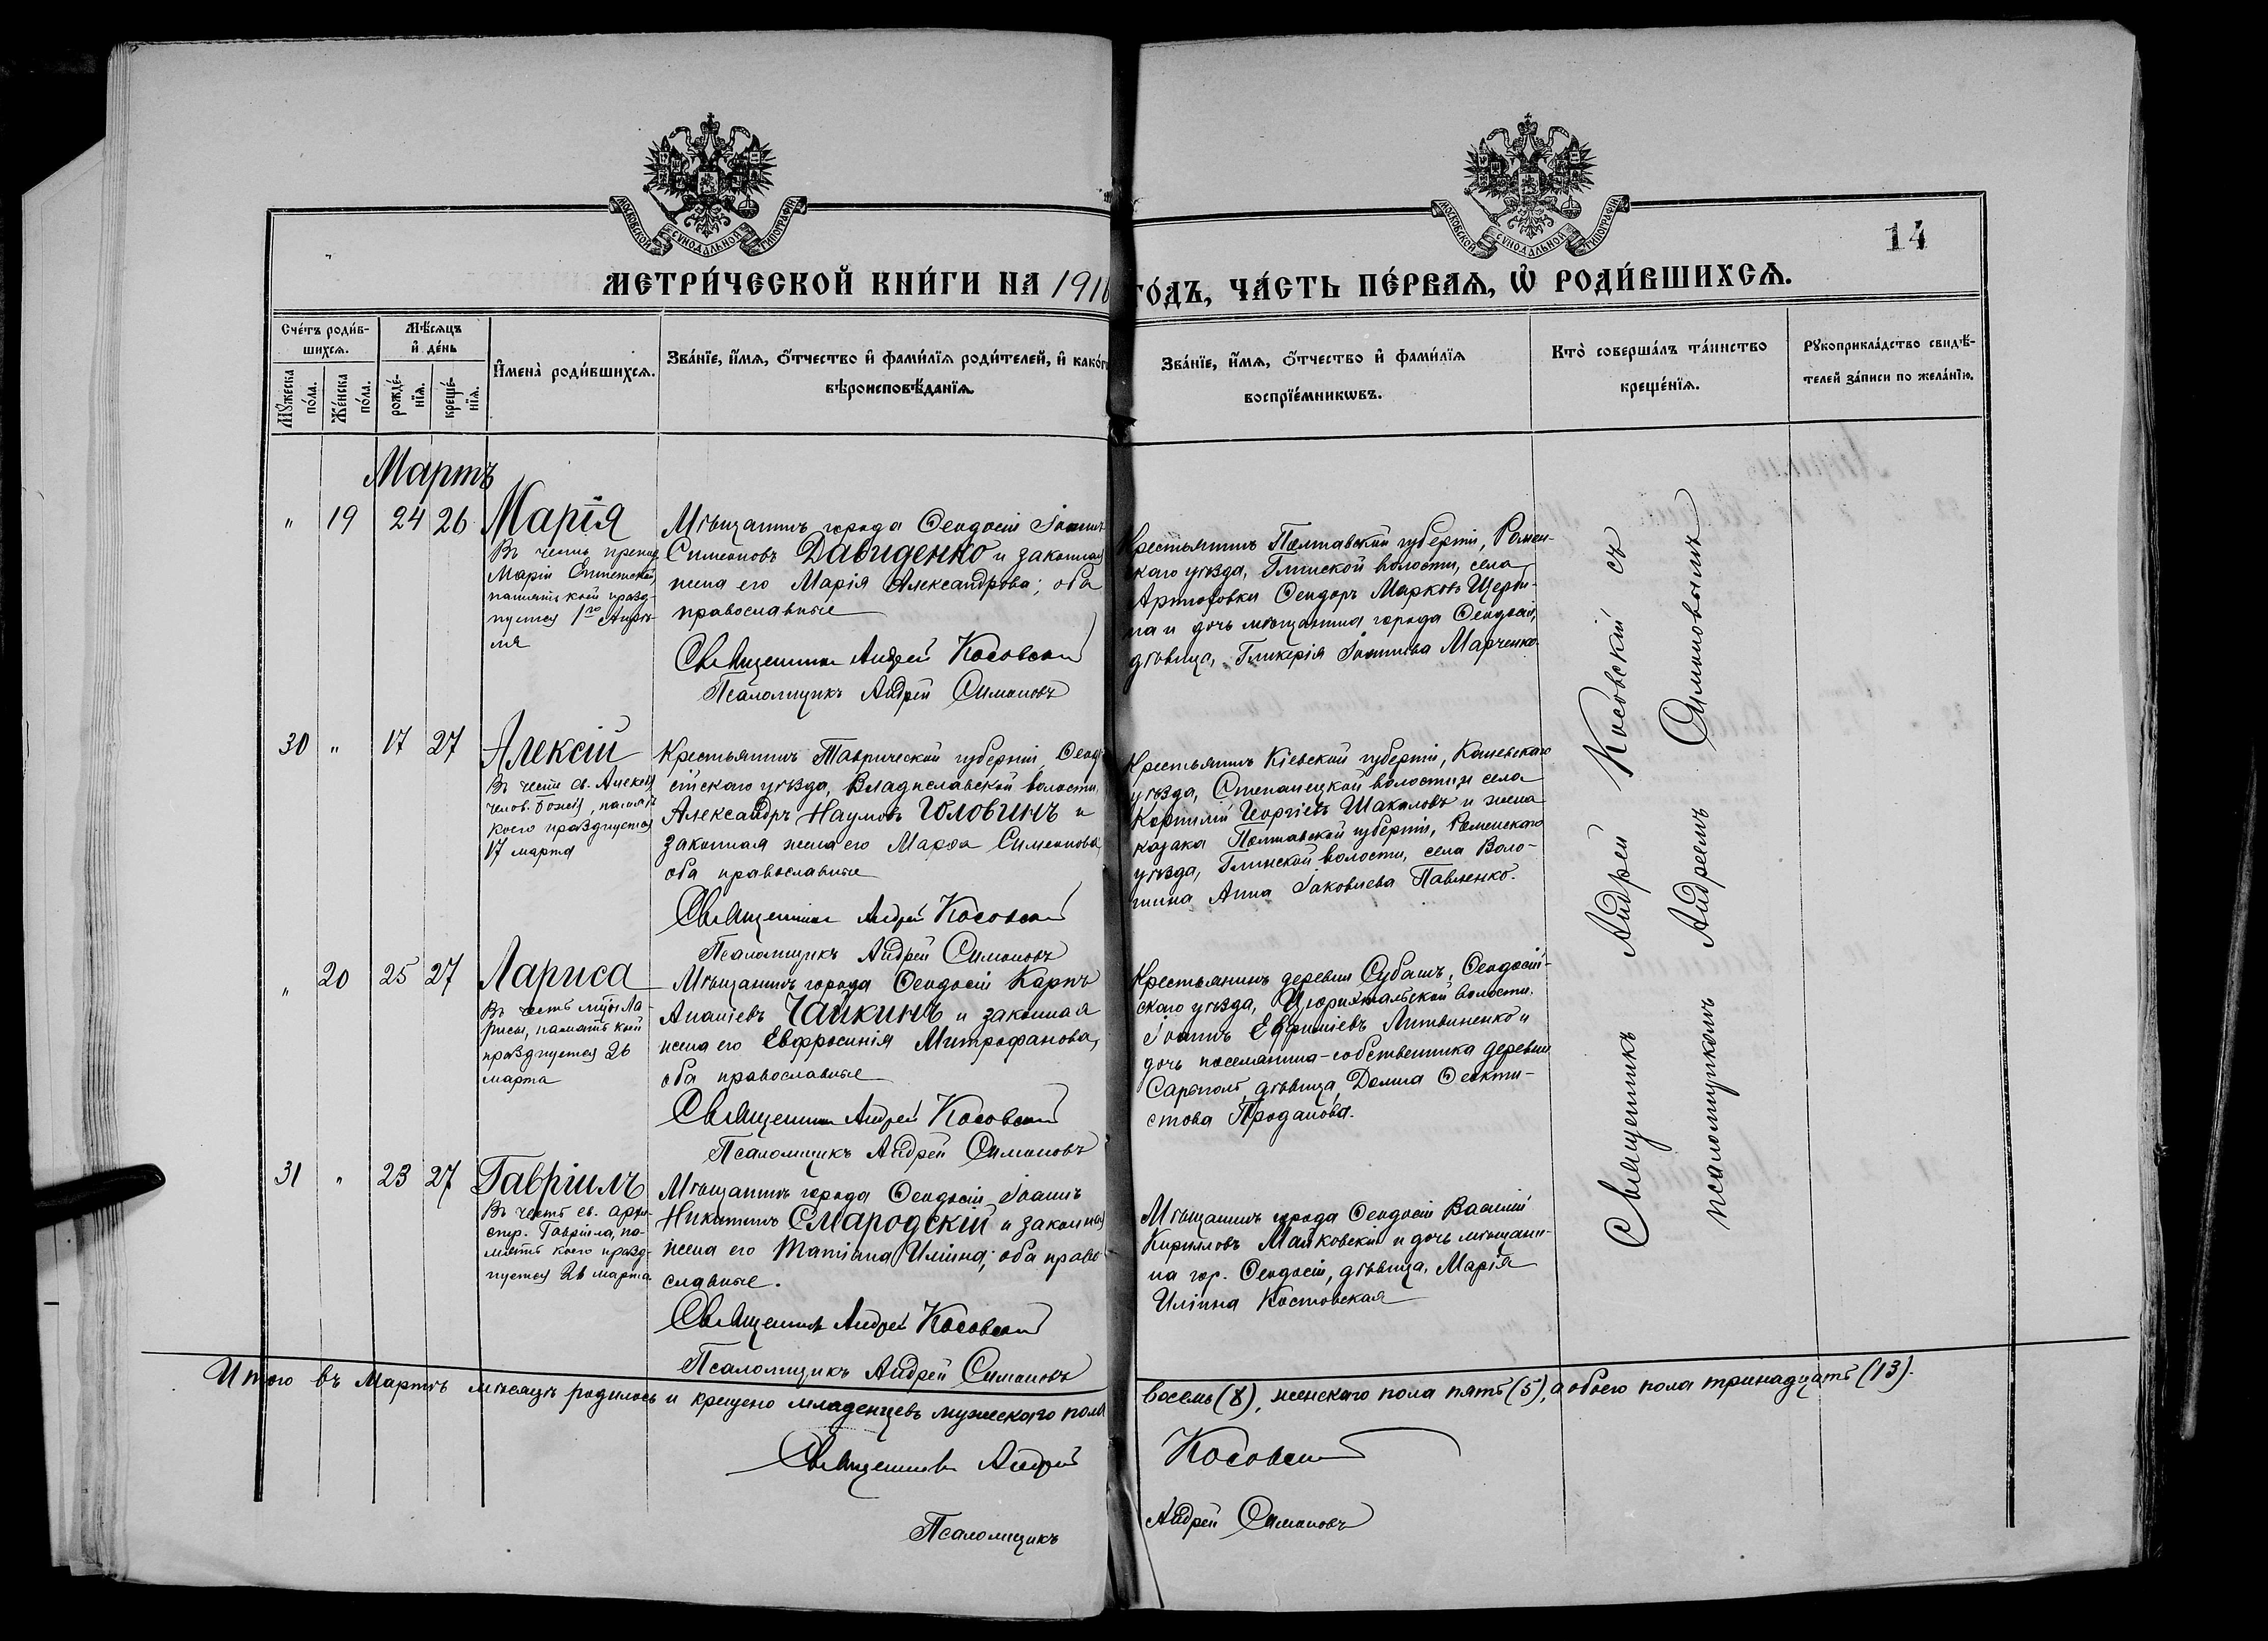 МОСКОВСКОЙ СУНОДАЛЬНОЙ ТИПОГРАФІИ
МОСКОВСКОЙ СУНОДАЛЬНОЙ ТИПОГРАФІИ
14
МЕТРИ́ЧЕСКОЙ КНИ́ГИ НА 1916 ГО́ДЪ, ЧА́СТЬ ПЕ́РВАѦ, Ѡ҆ РОДИ́ВШИХСѦ.
Сче́тъ роди́в-
шихсѧ.
Мѣ́сѧцъ
и҆ де́нь
И҆мена̀ роди́вшихсѧ.
Зва́нїе, и҆́мѧ, ѻ҆́тчество и҆ фами́лїѧ роди́телей, и҆ како́гѡ
вѣроисповѣ́данїѧ.
Зва́нїе, и҆́мѧ, ѻ҆́тчество и҆ фами́лїѧ
воспрїе́мникѡвъ.
Кто̀ соверша́лъ та́инство
креще́нїѧ.
Рꙋкоприкла́дство свидѣ́-
телей за́писи по жела́нїю.
Мꙋ́жеска
по́ла.
Же́нска
по́ла.
рожде́-
нїѧ.
креще́-
нїѧ.
Мартъ
" 19 24 26 Марія
Въ честь препод
Маріи Египетской,
память коей празд-
нуется 1го Апрѣ-
ля
Мѣщанинъ города Ѳеодосіи Іоаннъ
Симеоновъ Давиденко и законная
жена его Марія Александрова; оба
православные
Священникъ Андрей Косовскій
Псаломщикъ Андрей Симоновъ
Крестьянинъ Полтавской губерніи, Ромен-
скаго уѣзда, Глинской волости, села
Артюховки Ѳеодоръ Марковъ Щерби-
на и дочь мѣщанина города Ѳеодосіи,
дѣвица, Гликерія Іоаннова Марченко.
30 " 17 27 Алексій
Въ честь св. Алексія
челов. Божія, память
коего празднуется
17 марта
Крестьянинъ Таврической губерніи, Ѳеодо
сійскаго уѣзда, Владиславской волости,
Александръ Наумовъ Головинъ и
законная жена его Марѳа Симеонова
оба православные
Священникъ Андрей Косовскій
Псаломщикъ Андрей Симоновъ
Крестьянинъ Кіевской губерніи, Каневскаго
уѣзда, Степанецкой волости и села
Корнилій Георгіевъ Шакаловъ и жена
казака Полтавской губерніи, Роменскаго
уѣзда, Глинской волости, села Воло-
шина Анна Іаковлева Павленко.
" 20 25 27 Лариса
Въ честь мцы Ла-
рисы, память коей
празднуется 26
марта
Мѣщанинъ города Ѳеодосіи Карпъ
Ананіевъ Чайкинъ и законная
жена его Евфросинія Митрофанова,
оба православные
Священникъ Андрей Косовскій
Псаломщикъ Андрей Симоновъ
Крестьянинъ деревни Субашъ, Ѳеодосій-
скаго уѣзда, Цюрихтальской волости,
Іоаннъ Евфиміевъ Литвиненко и
дочь поселянина-собственника деревни
Сарыголъ, дѣвица, Домна Ѳеокти-
стова Проданова.
31 " 23 27 Гавріилъ
Въ честь св. архи-
стр. Гавріила, па-
мять коего празд-
нуется 26 марта
Мѣщанинъ города Ѳеодосіи Іоаннъ
Никитинъ Смародскій и законная
жена его Татіана Иліина; оба право-
славные.
Священникъ Андрей Косовскій
Псаломщикъ Андрей Симоновъ
Мѣщанинъ города Ѳеодосіи Василій
Кирилловъ Майковскій и дочь мѣщани-
на гор. Ѳеодосіи, дѣвица, Марія
Иліина Костовская
Священникъ Андрей Косовскій съ
псаломщикомъ Андреемъ Симоновымъ
Итого въ Мартѣ мѣсяцѣ родилось и крещено младенцевъ мужескаго пола восемь (8), женскаго пола пять (5), а обоего пола тринадцать (13).
Священникъ Андрей Косовскій
Псаломщикъ Андрей Симоновъ